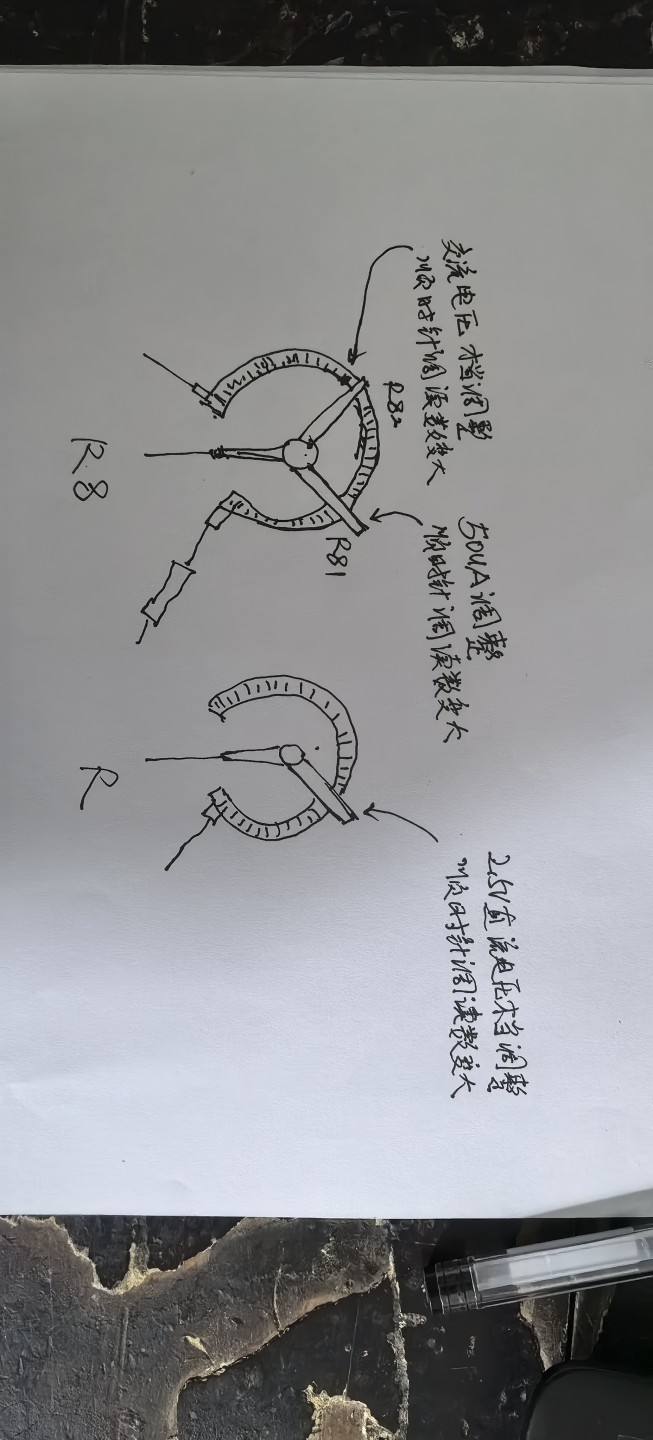 交流电压档调整
顺时针调读数变大
R82
50uA调整
顺时针调读数变大
R81
R8
2.5V直流电压档调整
顺时针调读数变大
R